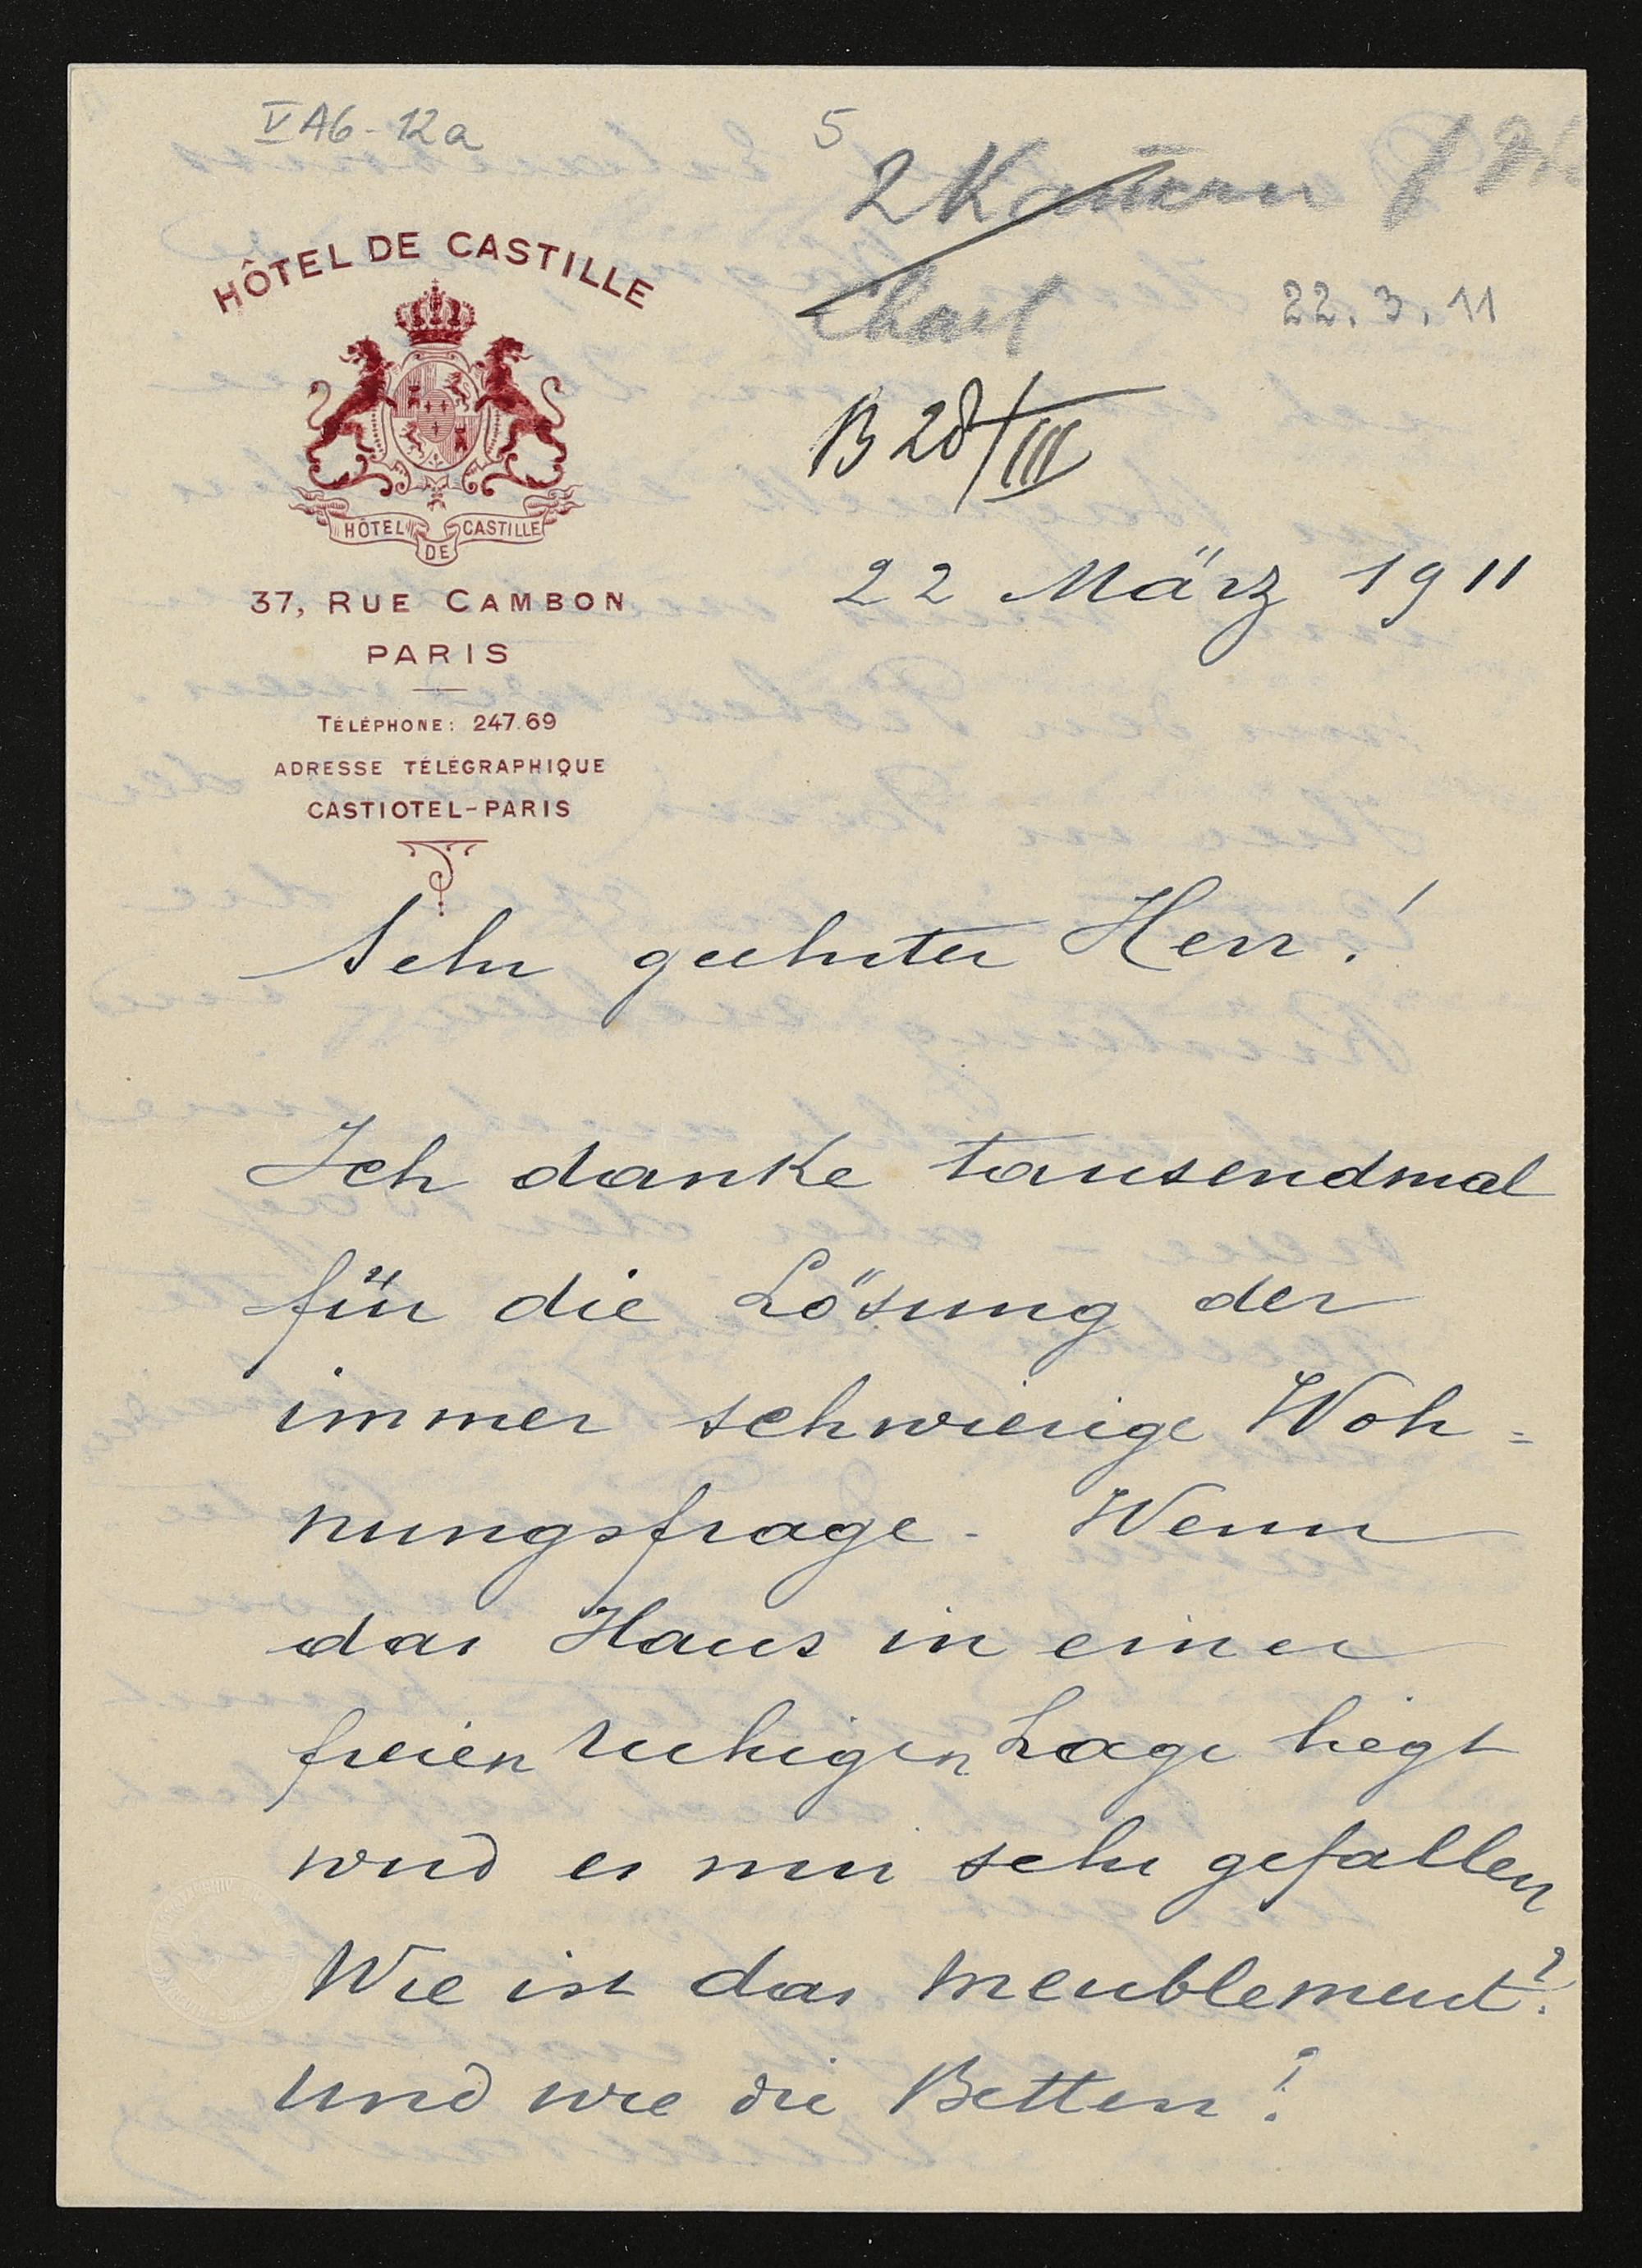 V A6-12a
5
2 K
22.3.11
B 28/III
HÔTEL DE CASTILLE
HÔTEL DE CASTILLE
37, RUE CAMBON
PARIS
TÉLÉPHONE: 247.69
ADRESSE TÉLÉGRAPHIQUE
CASTIOTEL-PARIS
22 März 1911
Sehr geehrter Herr!
Ich danke tausendmal
für die Lösung der
immer schwierige Woh=
nungsfrage. Wenn
das Haus in einer
freien ruhigen Lage liegt
wird es mir sehr gefallen
Wie ist das Meublement?
Und wie die Betten?